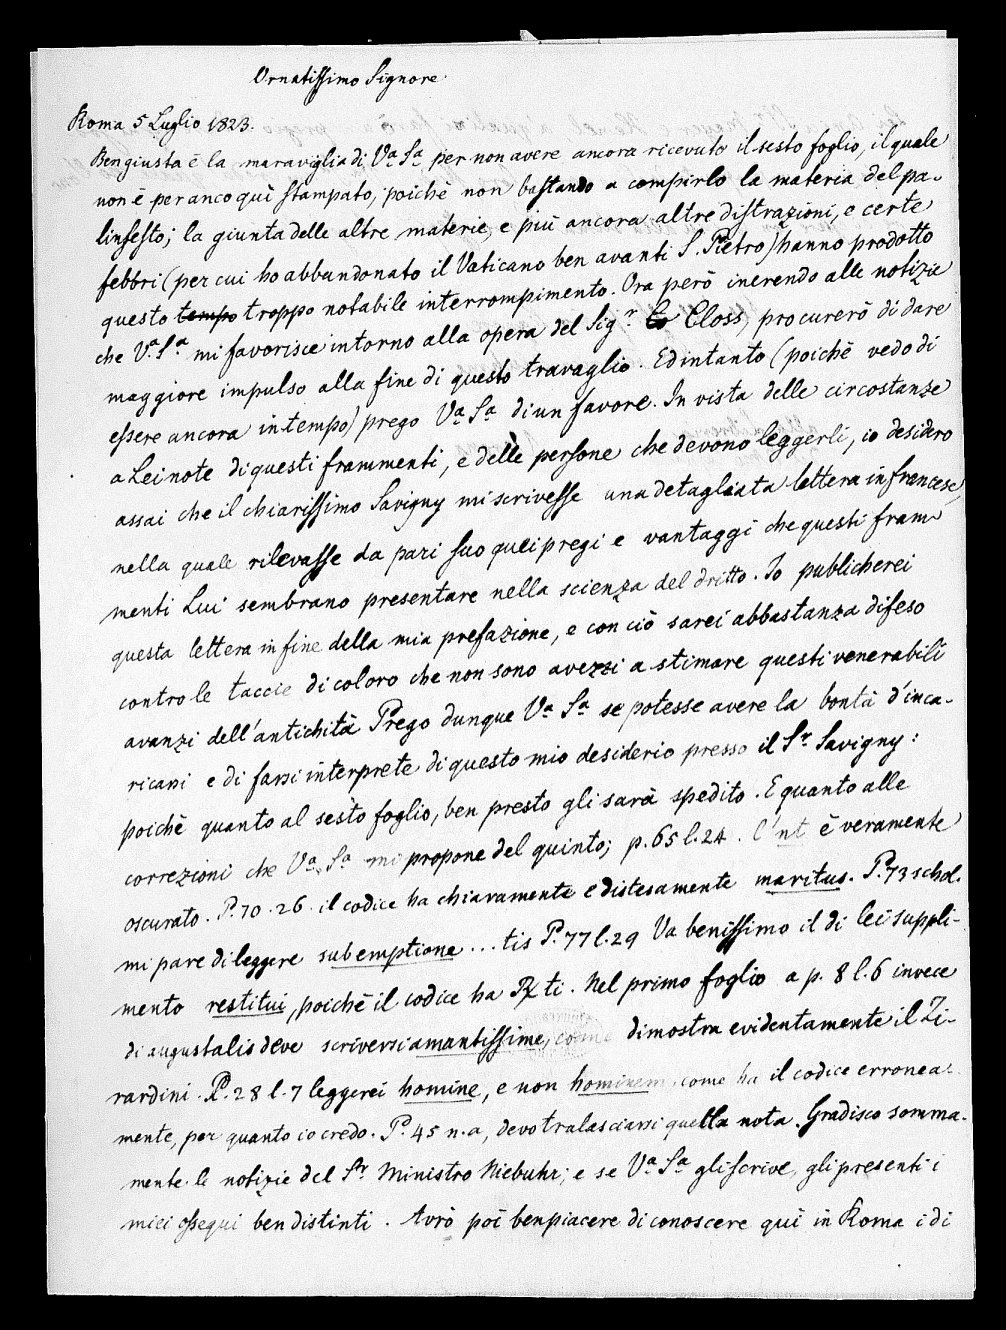 Ornatissimo Signore.
Roma 5 Luglio 1823.
Ben giusta è la maraviglia di Vª Sª per non avere ancora ricevuto il sesto foglio, il quale
non è per anco quì stampato, poichè non bastando a compirlo la materia del pa-
linsesto; la giunta delle altre materie, e più ancora altre distrazioni, e certe
febbri (per cui ho abbandonato il Vaticano ben avanti S. Pietro) hanno prodotto
questo tempo troppo notabile interrompimento. Ora però inerendo alle notizie
che Vª Sª mi favorisce intorno alla opera del Sigr Closs, procurerò di dare
maggiore impulso alla fine di questo travaglio. Ed intanto (poichè vedo di
essere ancora in tempo) prego Vª Sª di un favore. In vista delle circostanze
a Lei note di questi frammenti, e delle persone che devono leggerli, io desidero
assai che il chiarissimo Savigny mi scrivesse una detagliata lettera in francese,
nella quale rilevasse da pari suo quei pregi e vantaggi che questi fram-
menti Lui sembrano presentare nella scienza del dritto. Io publicherei
questa lettera in fine della mia prefazione, e con ciò sarei abbastanza difeso
contro le taccie di coloro che non sono avezzi a stimare questi venerabili
avanzi dell'antichità Prego dunque Vª Sª se potesse avere la bontà d'inca-
ricarsi e di farsi interprete di questo mio desiderio presso il Sr. Savigny:
poichè quanto al sesto foglio, ben presto gli sarà spedito. E quanto alle
correzioni che Vª Sª mi propone del quinto; p. 65 l. 24. l'nt è veramente
oscurato. P. 70. 26. il codice ha chiaramente e distesamente maritus. P. 73 schol.
mi pare di leggere subemptione ... tis P. 77 l. 29 Va benissimo il di lei suppli-
mento restitui, poichè il codice ha ti. Nel primo foglio a p. 8 l. 6 invece
di augustalis deve scriversi amantissime, come dimostra evidentemente il Zi-
rardini. P. 28 l. 7 leggerei homine, e non hominem, come ha il codice erronea-
mente, per quanto io credo. P. 45 n. a, devo tralasciarsi quella nota. Gradisco somma-
mente le notizie del Sr Ministro Niebuhr; e se Vª Sª gli scrive, gli presenti i
miei ossequi ben distinti. Avrò poi ben piacere di conoscere quì in Roma i di